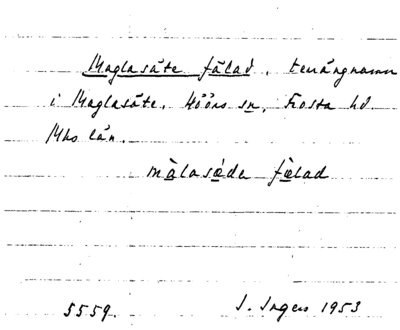 Maglasäte fälad, terrängnamn
i Maglasäte, Höörs sn, Frosta hd
Mhs län.
màlasǽda fæ̀lad
5559. I. Ingers 1953